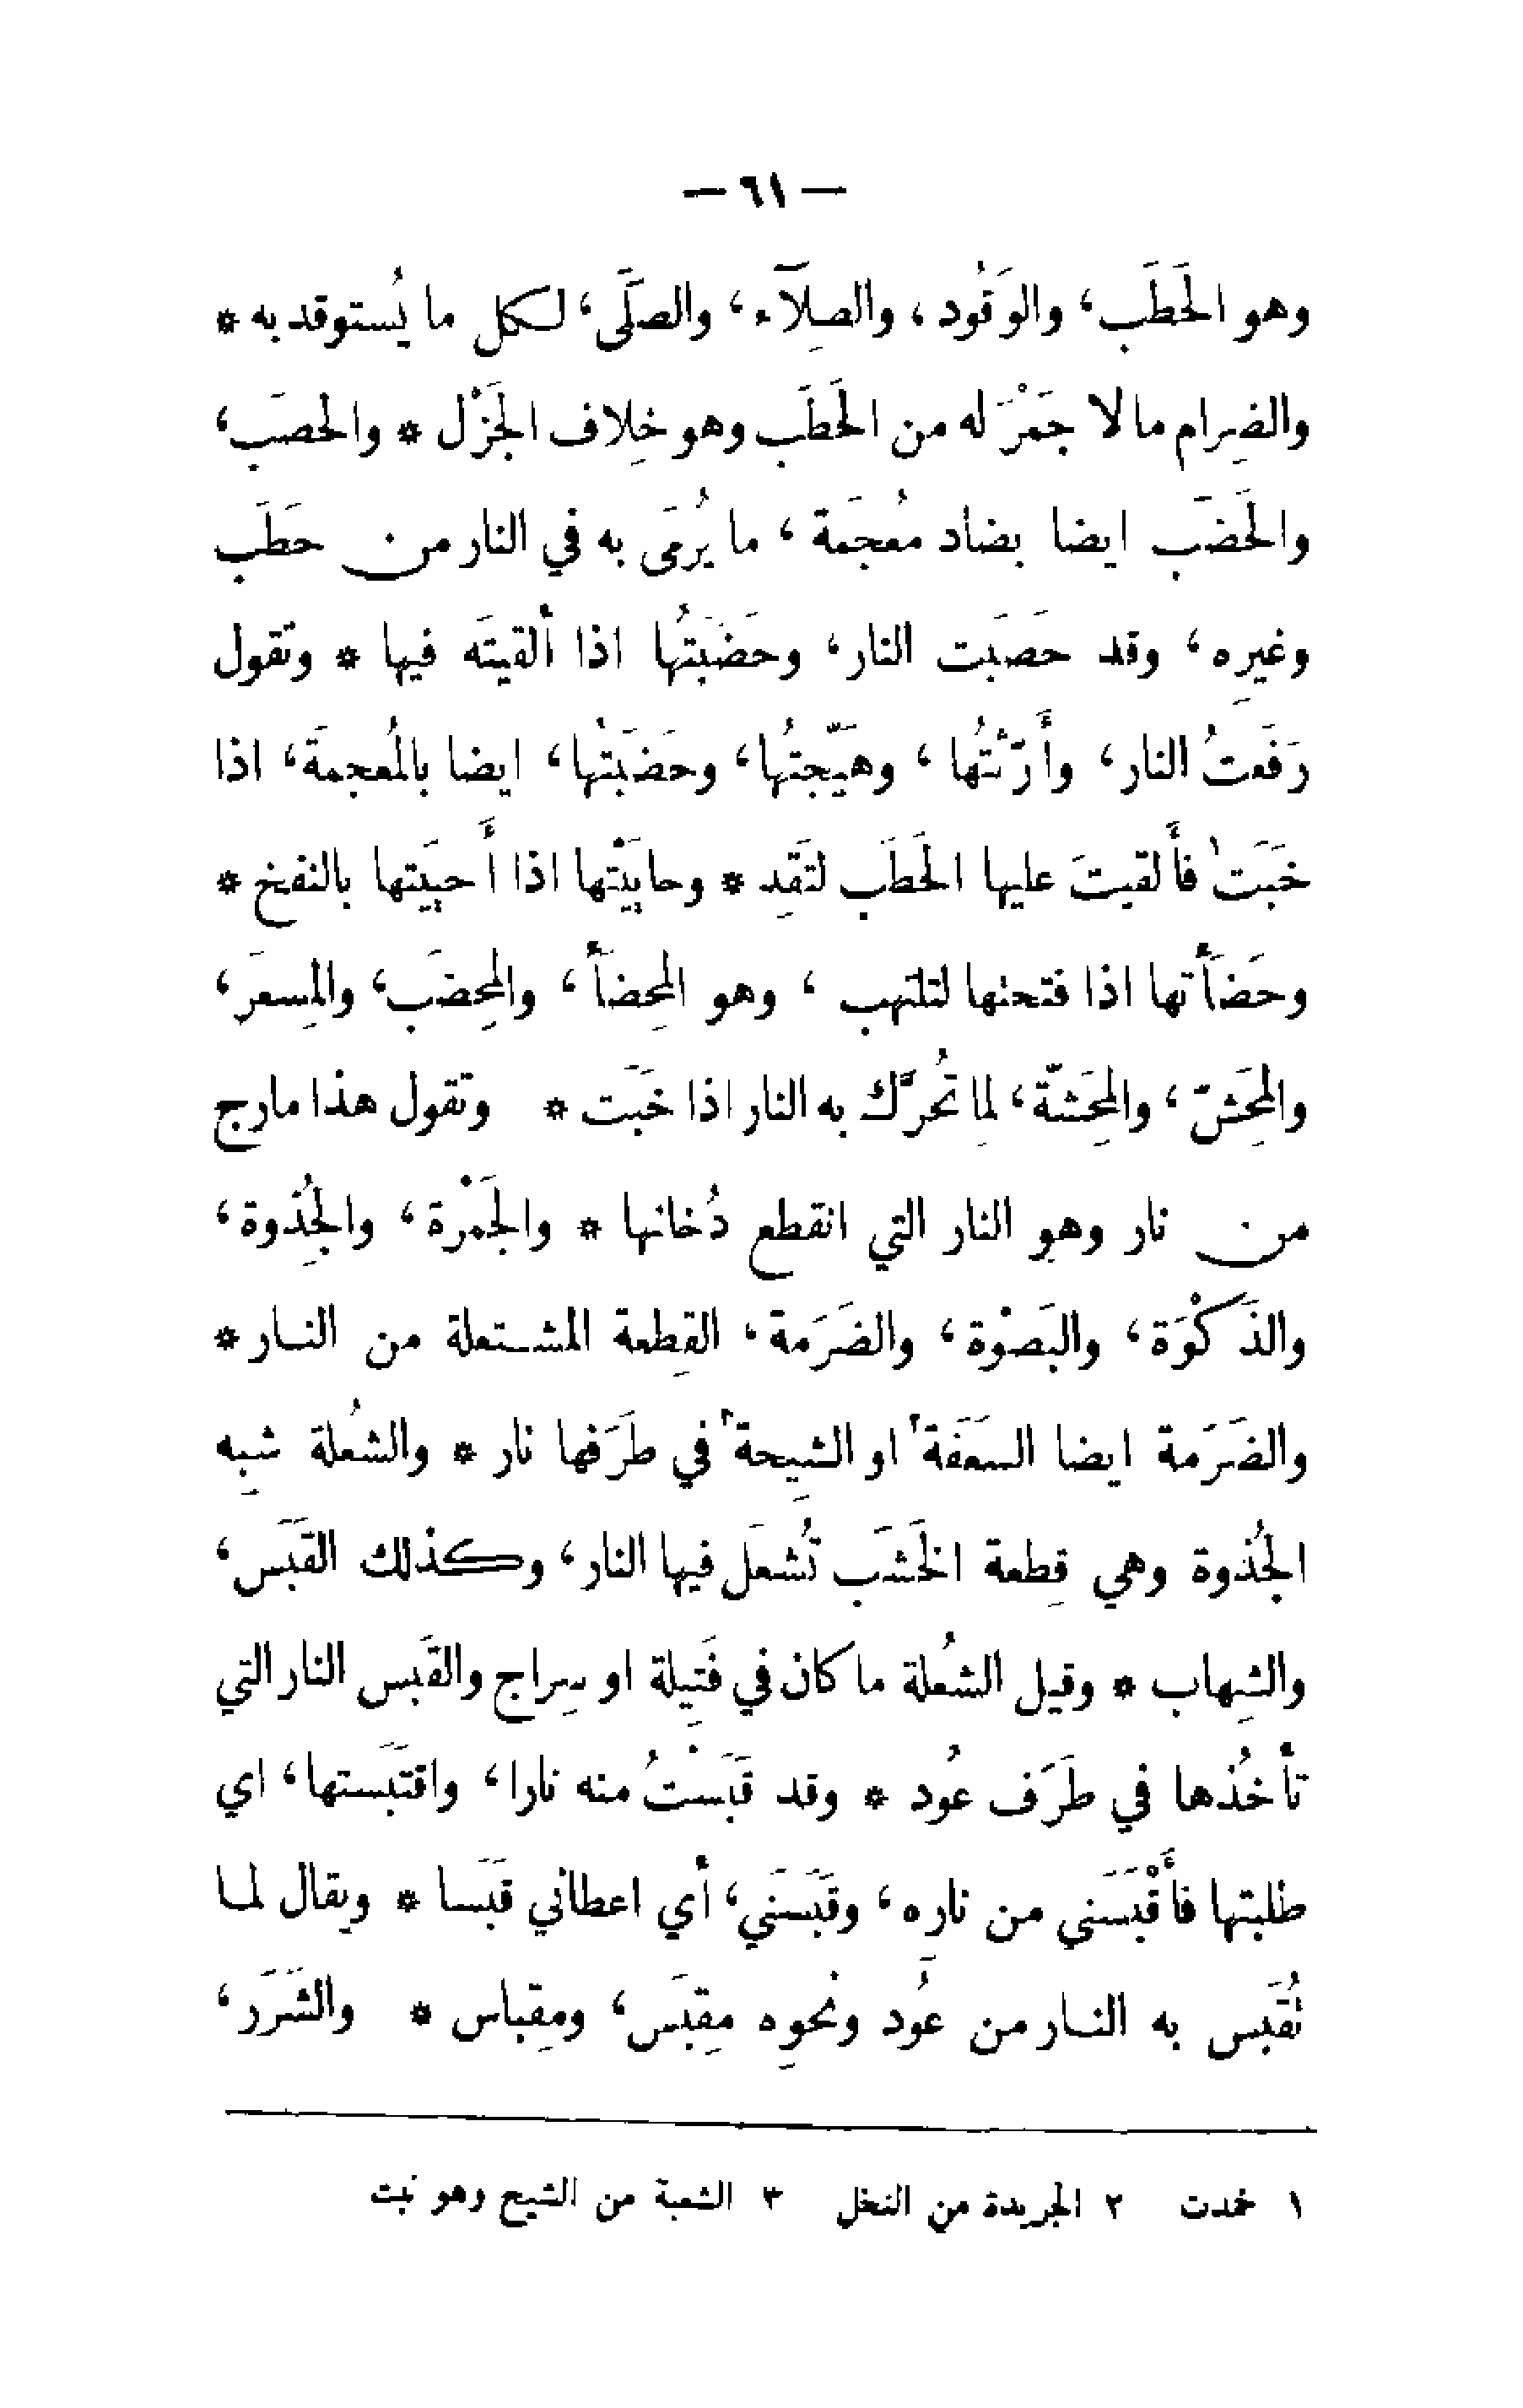 — ٦١ —
وهو الحَطَب، والوَقُود، والصِلَآء، والصَلَى، لكل ما يُستوقد به *
والضِرام ما لا جَمْرَ له من الحَطَب وهو خِلاف الجَزْل * والحصَب،
والحَضَب ايضا بضاد مُعجَمة، ما يُرمَى به في النار من حطَب
وغيرِه، وقد حَصَبت النار، وحَضَبتُها اذا ألقيتَه فيها * وتقول
رَفَعتُ النار، وأَرّثتُها، وهَيّجتُها، وحَضَبتها، ايضا بالمُعجمَة، اذا
خَبَت١ فأَلقيتَ عليها الحَطَب لتَقِد * وحايَيْتها اذا أَحيَيتها بالنفخ *
وحَضَأْتها اذا فتحتها لتلتهب، وهو المِحضَأ، والمِحضَب، والمِسعَر،
والمِحَشّ، والمِحَشّة، لِما تُحرَّك به النار اذا خَبَت * وتقول هذا مارج
من نار وهو النار التي انقطع دُخانها * والجَمْرة، والجُِذوة،
والذَكْوَة، والبَصْوة، والضَرَمة، القِطعة المشتعلة من النار *
والضَرَمة ايضا السَعَفة٢ او الشِيحة٣ في طرَفها نار * والشُعلة شبِه
الجُذوة وهي قِطعة الخَشَب تُشعَل فيها النار، وكذلك القَبَس،
والشِهاب * وقيل الشُعلة ما كان في فَتِيلة او سِراج والقَبس النار التي
تأخُذها في طَرَف عُود * وقد قَبَسْتُ منه نارا، واقتبَستها، اي
طلبتها فأَقْبَسَني من ناره، وقَبَسَني، أي اعطاني قبَسا * ويقال لما
تُقبَس به النار من عُود ونحوِه مِقبَس، ومِقباس * والشَرَر،
١ خمدت ٢ الجريدة من النخل ٣ الشعبة من الشيح وهو نبت